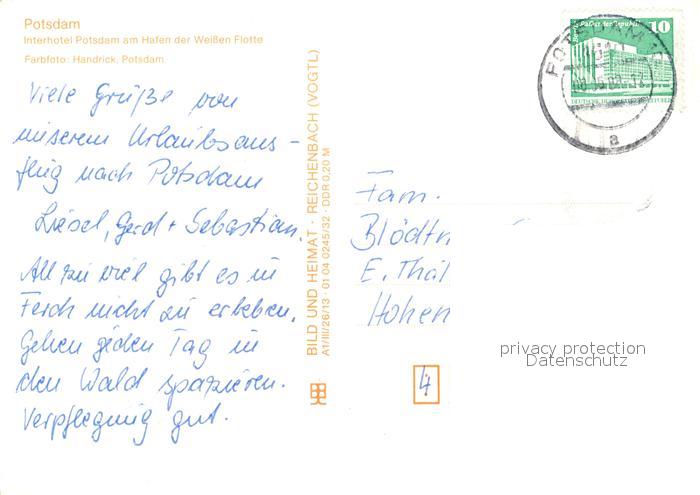 Potsdam
Interhotel Potsdam am Hafen der Weißen Flotte
Farbfoto: Handrick, Potsdam
Viele Grüße von
unserem Urlaubsaus-
flug nach Potsdam
Liesel, Gerd + Sebastian.
All zu viel gibt es in
Ferch nicht zu erleben.
Gehen jeden Tag in
den Wald spazieren.
Verpflegung gut.
BILD UND HEIMAT · REICHENBACH (VOGTL)
A1/III/26/13 · 01 04 0245/32 · DDR 0,20 M
10
Palast der Republik
DEUTSCHE DEMOKRATISCHE REPUBLIK
POTSDAM
a
Fam.
Blödtn
E. Thäl
Hohen
4
privacy protection
Datenschutz